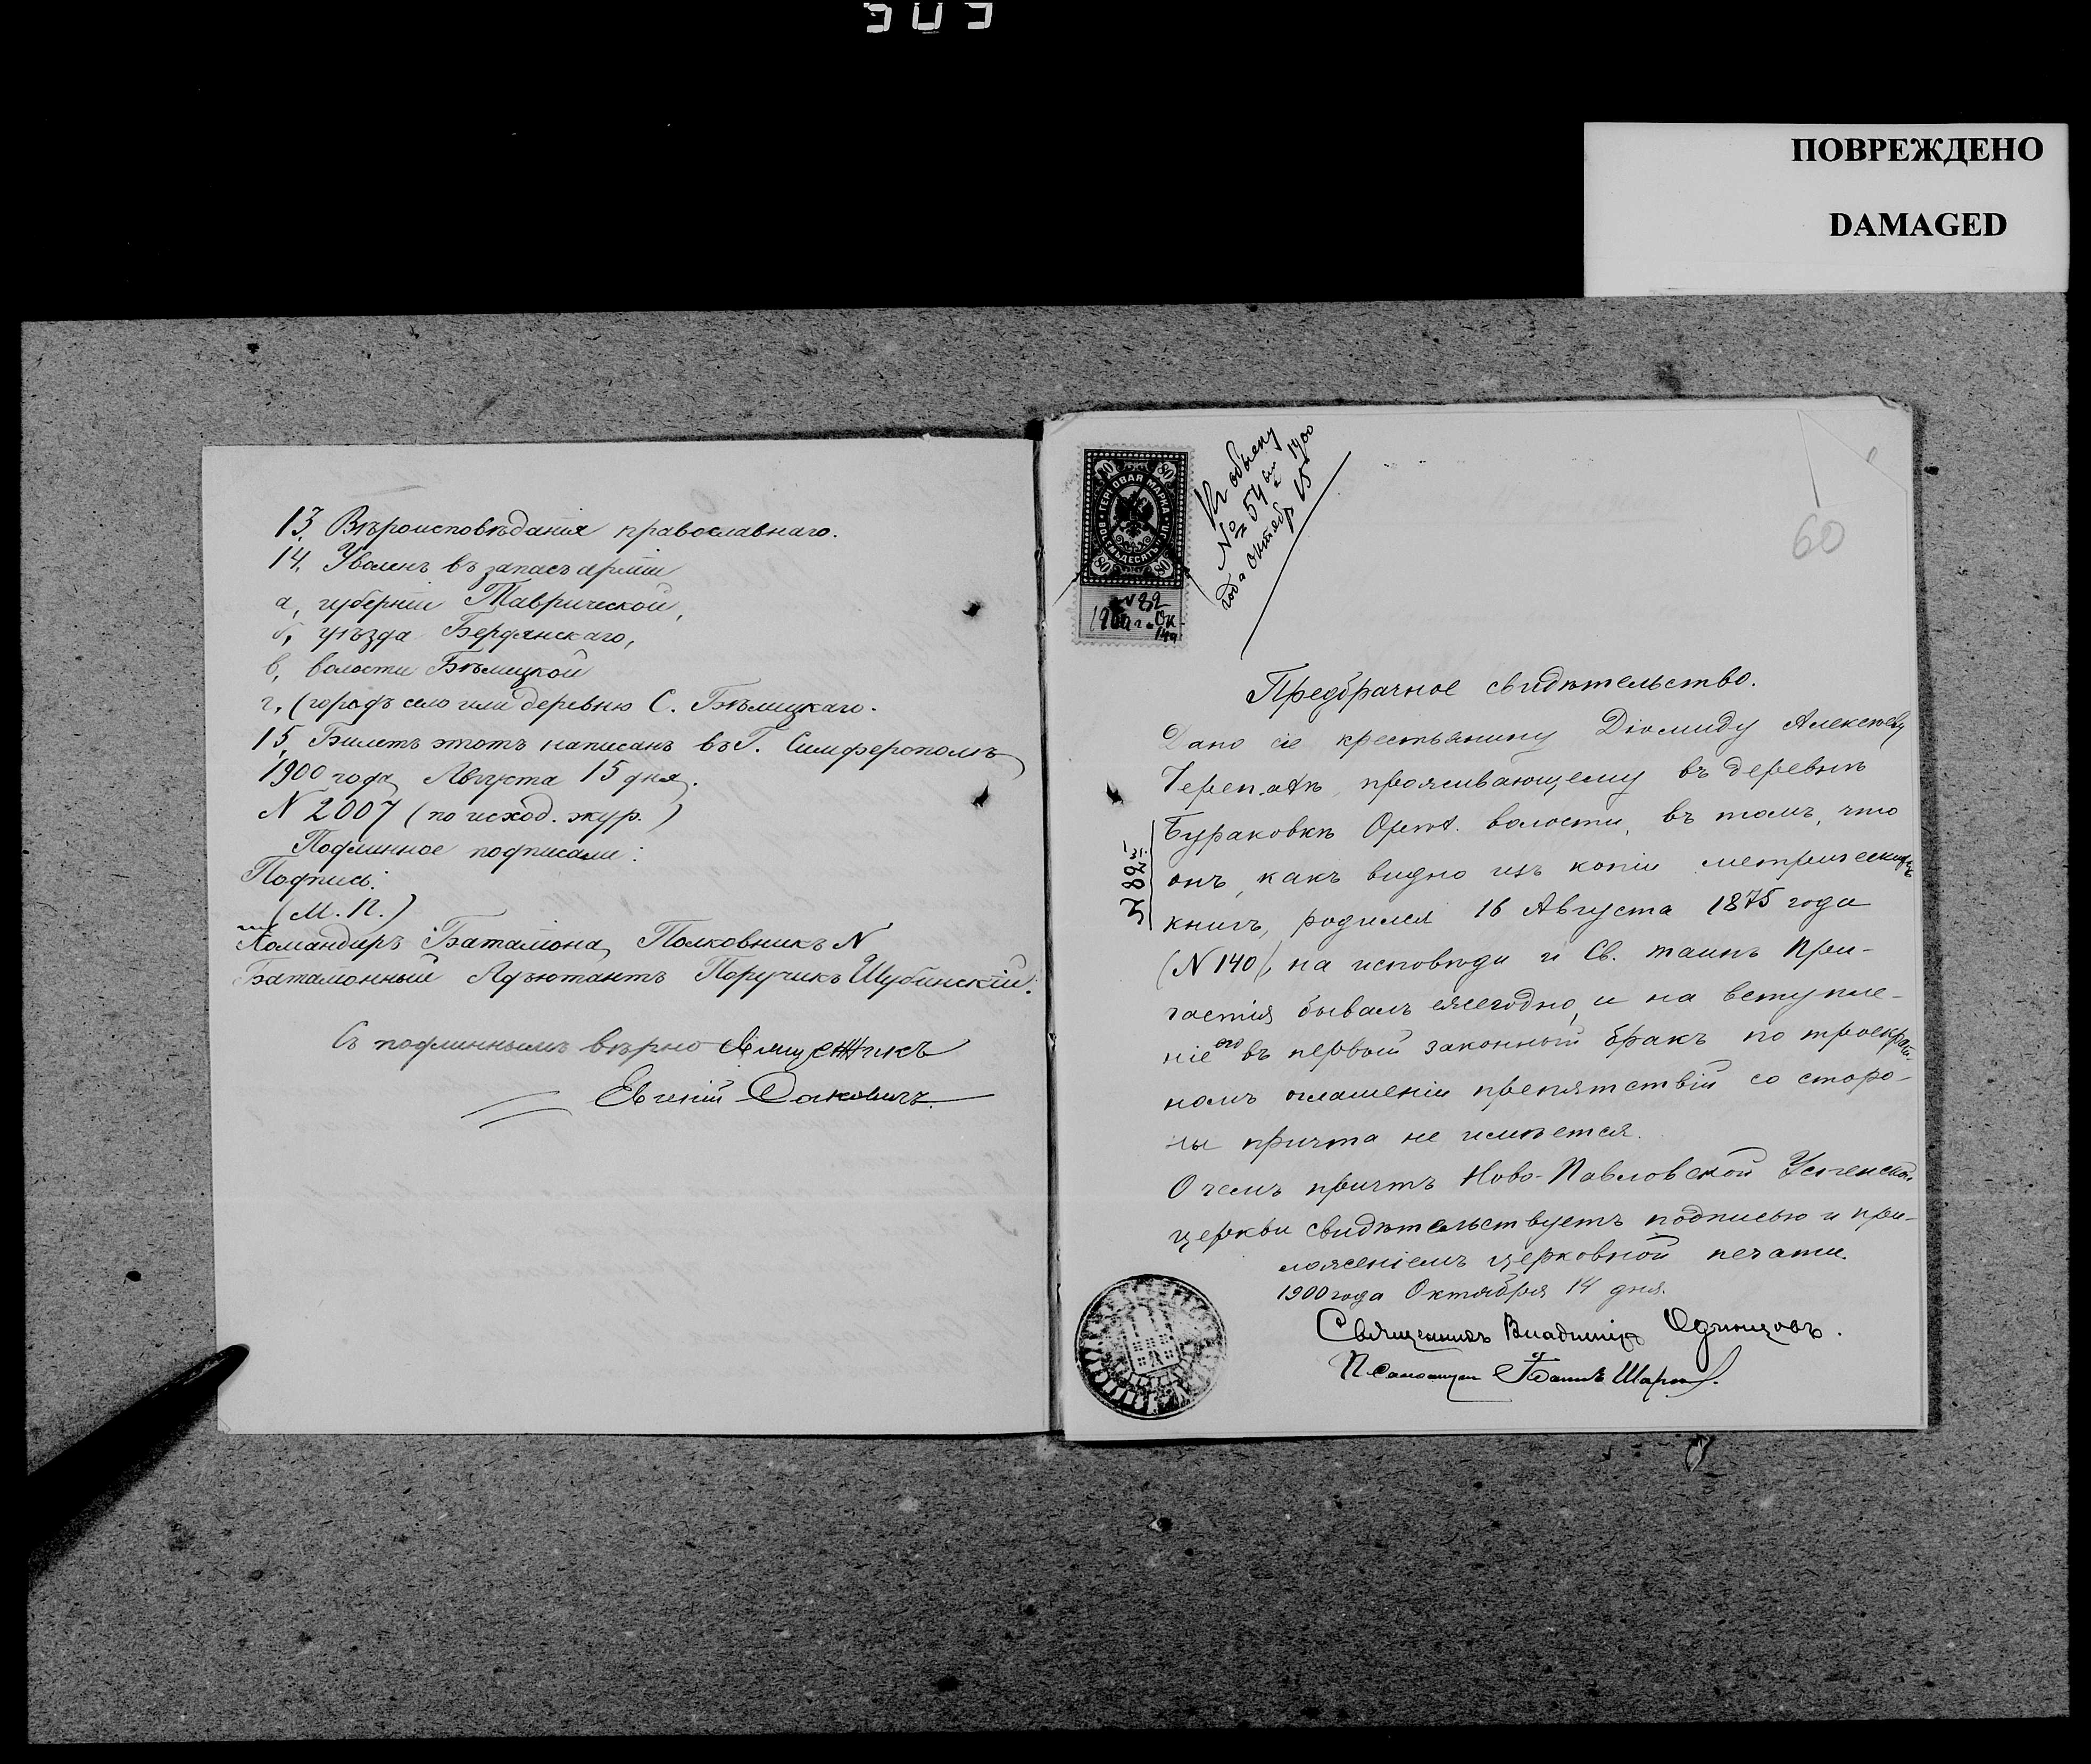 ПОВРЕЖДЕНО
DAMAGED
13. Вѣроисповѣданія православнаго.
14. Уволенъ въ запасъ арміи
а, губерніи Таврической,
б, уѣзда Бердянскаго,
в, волости Бѣлицкой
г, (городъ село или деревню С. Бѣлицкаго.
15. Билетъ этотъ написанъ въ Г. Симферополѣ
1900 года Августа 15 дня.
N 2007 (по исход. жур.)
Подлинное подписали:
Подпись.
(М. П.)
Командиръ Баталіона, Полковникъ N
Баталіонный Адъютантъ Поручикъ Шубинскій.
Съ подлиннымъ вѣрно Священникъ
Евгеній
80 80
ГЕРБОВАЯ МАРКА
ВОСЕМЬДЕСЯТЪ
80 80
N 82
1900 г. Ок.
14 д.
Къ обыску
№ 54 1900
года октябр 15
N 82
60
Предбрачное свидѣтельство.
Дано сіе крестьянину Діомиду Алексѣеву
проживающему въ деревнѣ
Бураковкѣ волости, въ томъ, что
онъ, какъ видно изъ копіи метрическихъ
книгъ, родился 16 Августа 1875 года
(N 140), на исповѣди и Св. таинъ При-
частія бывалъ ежегодно, и на вступле-
ніе его въ первый законный бракъ по троекрат-
номъ оглашеніи препятствій со сторо-
ны причта не имѣется.
О чемъ причтъ Ново-Павловской Успенской
церкви свидѣтельствуетъ подписью и при-
ложеніемъ церковной печати.
1900 года Октября 14 дня.
Священникъ Владиміръ Одинцовъ.
Псаломщик